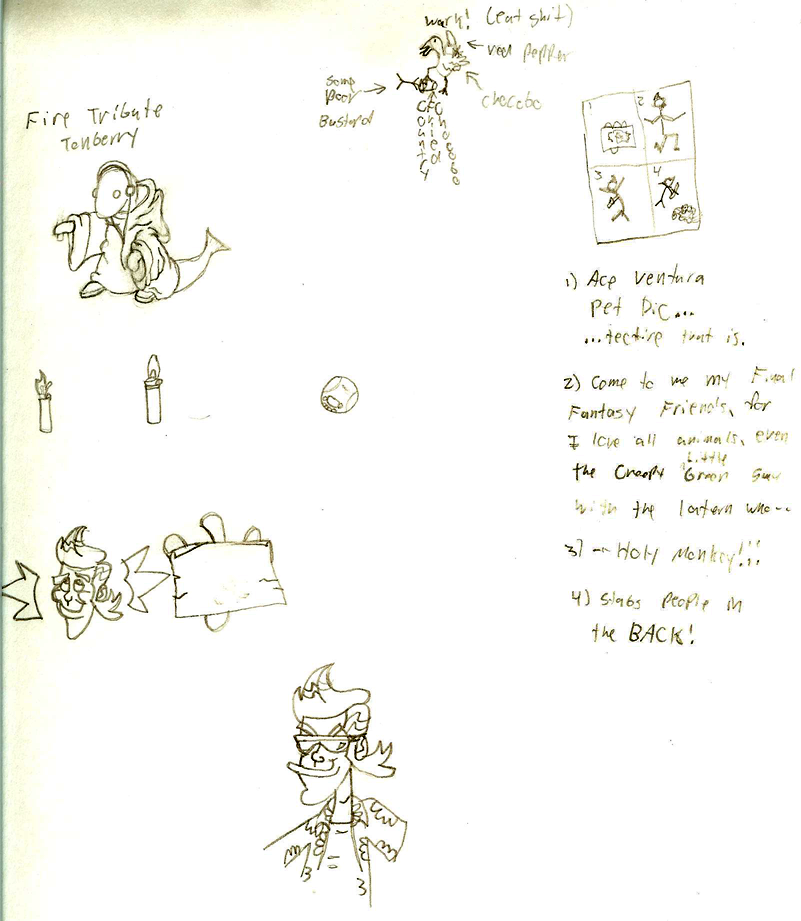 wark! (eat shit)
← red pepper
some
poor
Bustard
chocobo
Country
Fried
Chocobo
Fire Tribute
Tonberry
1
2
3
4
1) Ace Ventura
Pet Dic...
...tective that is.
2) Come to me my Final
Fantasy Friends, for
I love all animals, even
the Creepy Little Green Guy
with the lantern who--
3) -- Holy Monkey!!!
4) Stabs people in
the BACK!